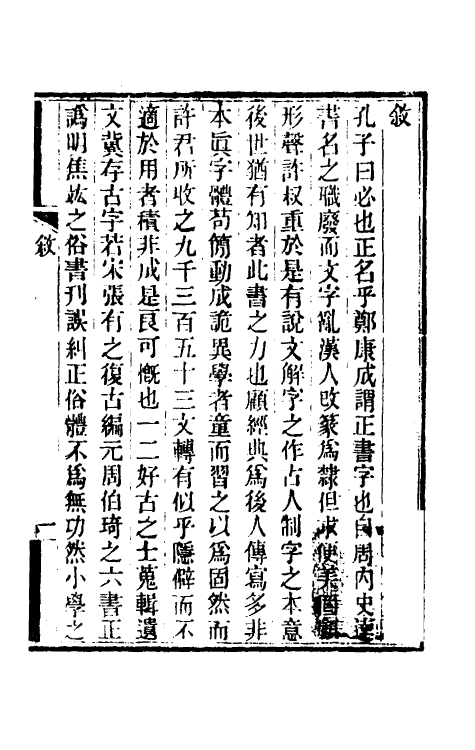 敘
孔子曰必也正名乎鄭康成謂正書字也自周内史達
書名之職廢而文字亂漢人改篆爲隸但求便美
形聲許叔重於是有說文解字之作古人制字之本意
後世猶有知者此書之力也顧經典爲後人傳寫多非
本眞字體茍簡動成詭異學者童而習之以爲固然而
許君所收之九千三百五十三文轉有似乎隱僻而不
適於用者積非成是良可慨也一二好古之士蒐輯遺
文冀存古字若宋張有之復古編元周伯琦之六書正
譌明焦竑之俗書刊誤糾正俗體不爲無功然小學之
敘
一